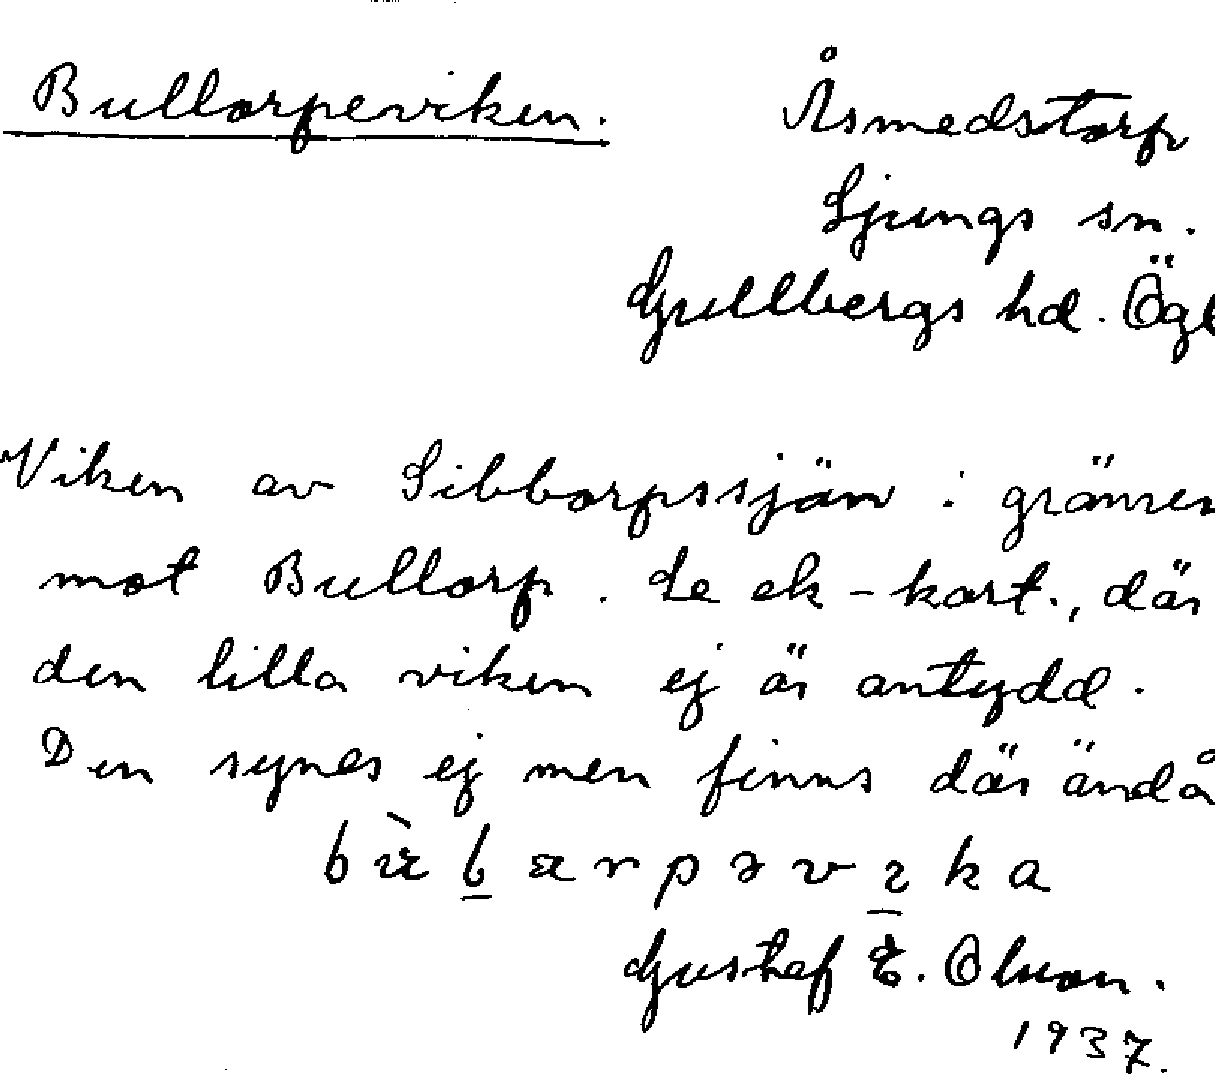 Bullorpeviken. Åsmedstorp
Ljungs sn.
Gullbergs hd. Ögl
Viken av Sibborpssjön i gränsen
mot Bullorp. Se ek-kart., där
den lilla viken ej är antydd.
Den synes ej men finns där ändå
Gustaf E. Olsson.
1937.